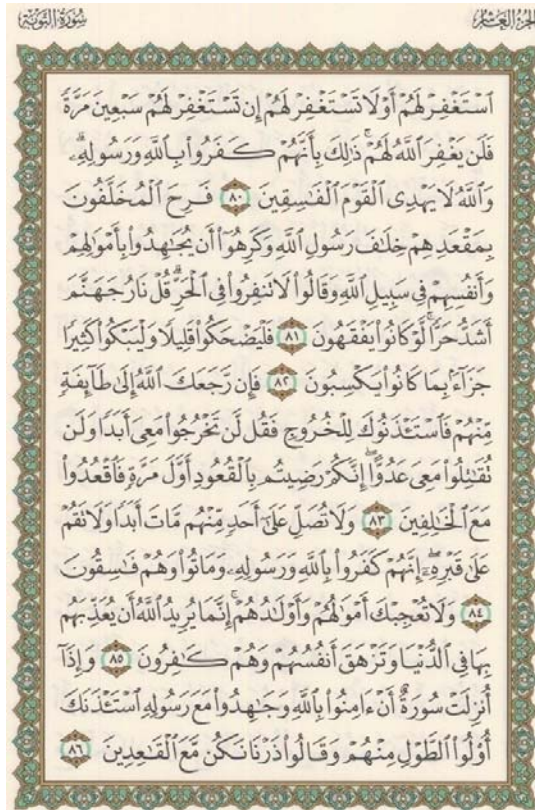 الجزء العاشر
سورة التوبة
ٱسۡتَغۡفِرۡ لَهُمۡ أَوۡ لَا تَسۡتَغۡفِرۡ لَهُمۡ إِن تَسۡتَغۡفِرۡ لَهُمۡ سَبۡعِينَ مَرَّةٗ
فَلَن يَغۡفِرَ ٱللَّهُ لَهُمۡۚ ذَٰلِكَ بِأَنَّهُمۡ كَفَرُواْ بِٱللَّهِ وَرَسُولِهِۦۗ
وَٱللَّهُ لَا يَهۡدِي ٱلۡقَوۡمَ ٱلۡفَٰسِقِينَ ٨٠ فَرِحَ ٱلۡمُخَلَّفُونَ
بِمَقۡعَدِهِمۡ خِلَٰفَ رَسُولِ ٱللَّهِ وَكَرِهُوٓاْ أَن يُجَٰهِدُواْ بِأَمۡوَٰلِهِمۡ
وَأَنفُسِهِمۡ فِي سَبِيلِ ٱللَّهِ وَقَالُواْ لَا تَنفِرُواْ فِي ٱلۡحَرِّۗ قُلۡ نَارُ جَهَنَّمَ
أَشَدُّ حَرّٗاۚ لَّوۡ كَانُواْ يَفۡقَهُونَ ٨١ فَلۡيَضۡحَكُواْ قَلِيلٗا وَلۡيَبۡكُواْ كَثِيرٗا
جَزَآءَۢ بِمَا كَانُواْ يَكۡسِبُونَ ٨٢ فَإِن رَّجَعَكَ ٱللَّهُ إِلَىٰ طَآئِفَةٖ
مِّنۡهُمۡ فَٱسۡتَـٔۡذَنُوكَ لِلۡخُرُوجِ فَقُل لَّن تَخۡرُجُواْ مَعِيَ أَبَدٗا وَلَن
تُقَٰتِلُواْ مَعِيَ عَدُوًّاۖ إِنَّكُمۡ رَضِيتُم بِٱلۡقُعُودِ أَوَّلَ مَرَّةٖ فَٱقۡعُدُواْ
مَعَ ٱلۡخَٰلِفِينَ ٨٣ وَلَا تُصَلِّ عَلَىٰٓ أَحَدٖ مِّنۡهُم مَّاتَ أَبَدٗا وَلَا تَقُمۡ
عَلَىٰ قَبۡرِهِۦٓۖ إِنَّهُمۡ كَفَرُواْ بِٱللَّهِ وَرَسُولِهِۦ وَمَاتُواْ وَهُمۡ فَٰسِقُونَ
٨٤ وَلَا تُعۡجِبۡكَ أَمۡوَٰلُهُمۡ وَأَوۡلَٰدُهُمۡۚ إِنَّمَا يُرِيدُ ٱللَّهُ أَن يُعَذِّبَهُم
بِهَا فِي ٱلدُّنۡيَا وَتَزۡهَقَ أَنفُسُهُمۡ وَهُمۡ كَٰفِرُونَ ٨٥ وَإِذَآ
أُنزِلَتۡ سُورَةٌ أَنۡ ءَامِنُواْ بِٱللَّهِ وَجَٰهِدُواْ مَعَ رَسُولِهِ ٱسۡتَـٔۡذَنَكَ
أُوْلُواْ ٱلطَّوۡلِ مِنۡهُمۡ وَقَالُواْ ذَرۡنَا نَكُن مَّعَ ٱلۡقَٰعِدِينَ ٨٦